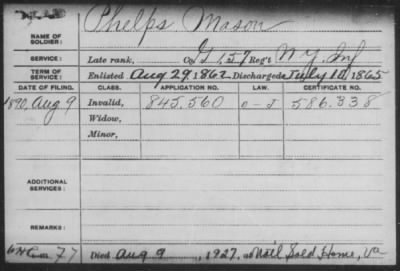 Phelps Mason
NAME OF SOLDIER:
SERVICE: Late rank, Co. G, 157 Reg't N.Y. Inf
TERM OF SERVICE: Enlisted Aug 29, 1862, Discharged July 10, 1865
DATE OF FILING. CLASS. APPLICATION NO. LAW. CERTIFICATE NO.
1890, Aug 9 Invalid, 845,560 586.338
Widow,
Minor,
ADDITIONAL SERVICES:
REMARKS:
77 Died Aug 9, 1927, at Natl Sold Home, Va